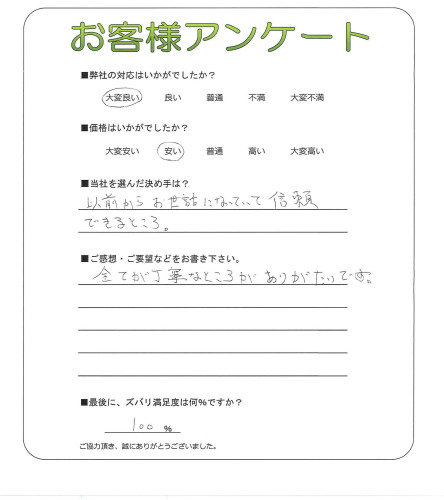 お客様アンケート
■弊社の対応はいかがでしたか？
大変良い 良い 普通 不満 大変不満
■価格はいかがでしたか？
大変安い 安い 普通 高い 大変高い
■当社を選んだ決め手は？
以前からお世話になっていて信頼
できるところ。
■ご感想・ご要望などをお書き下さい。
全てが丁寧なところがありがたいです。
■最後に、ズバリ満足度は何％ですか？
100 %
ご協力頂き、誠にありがとうございました。